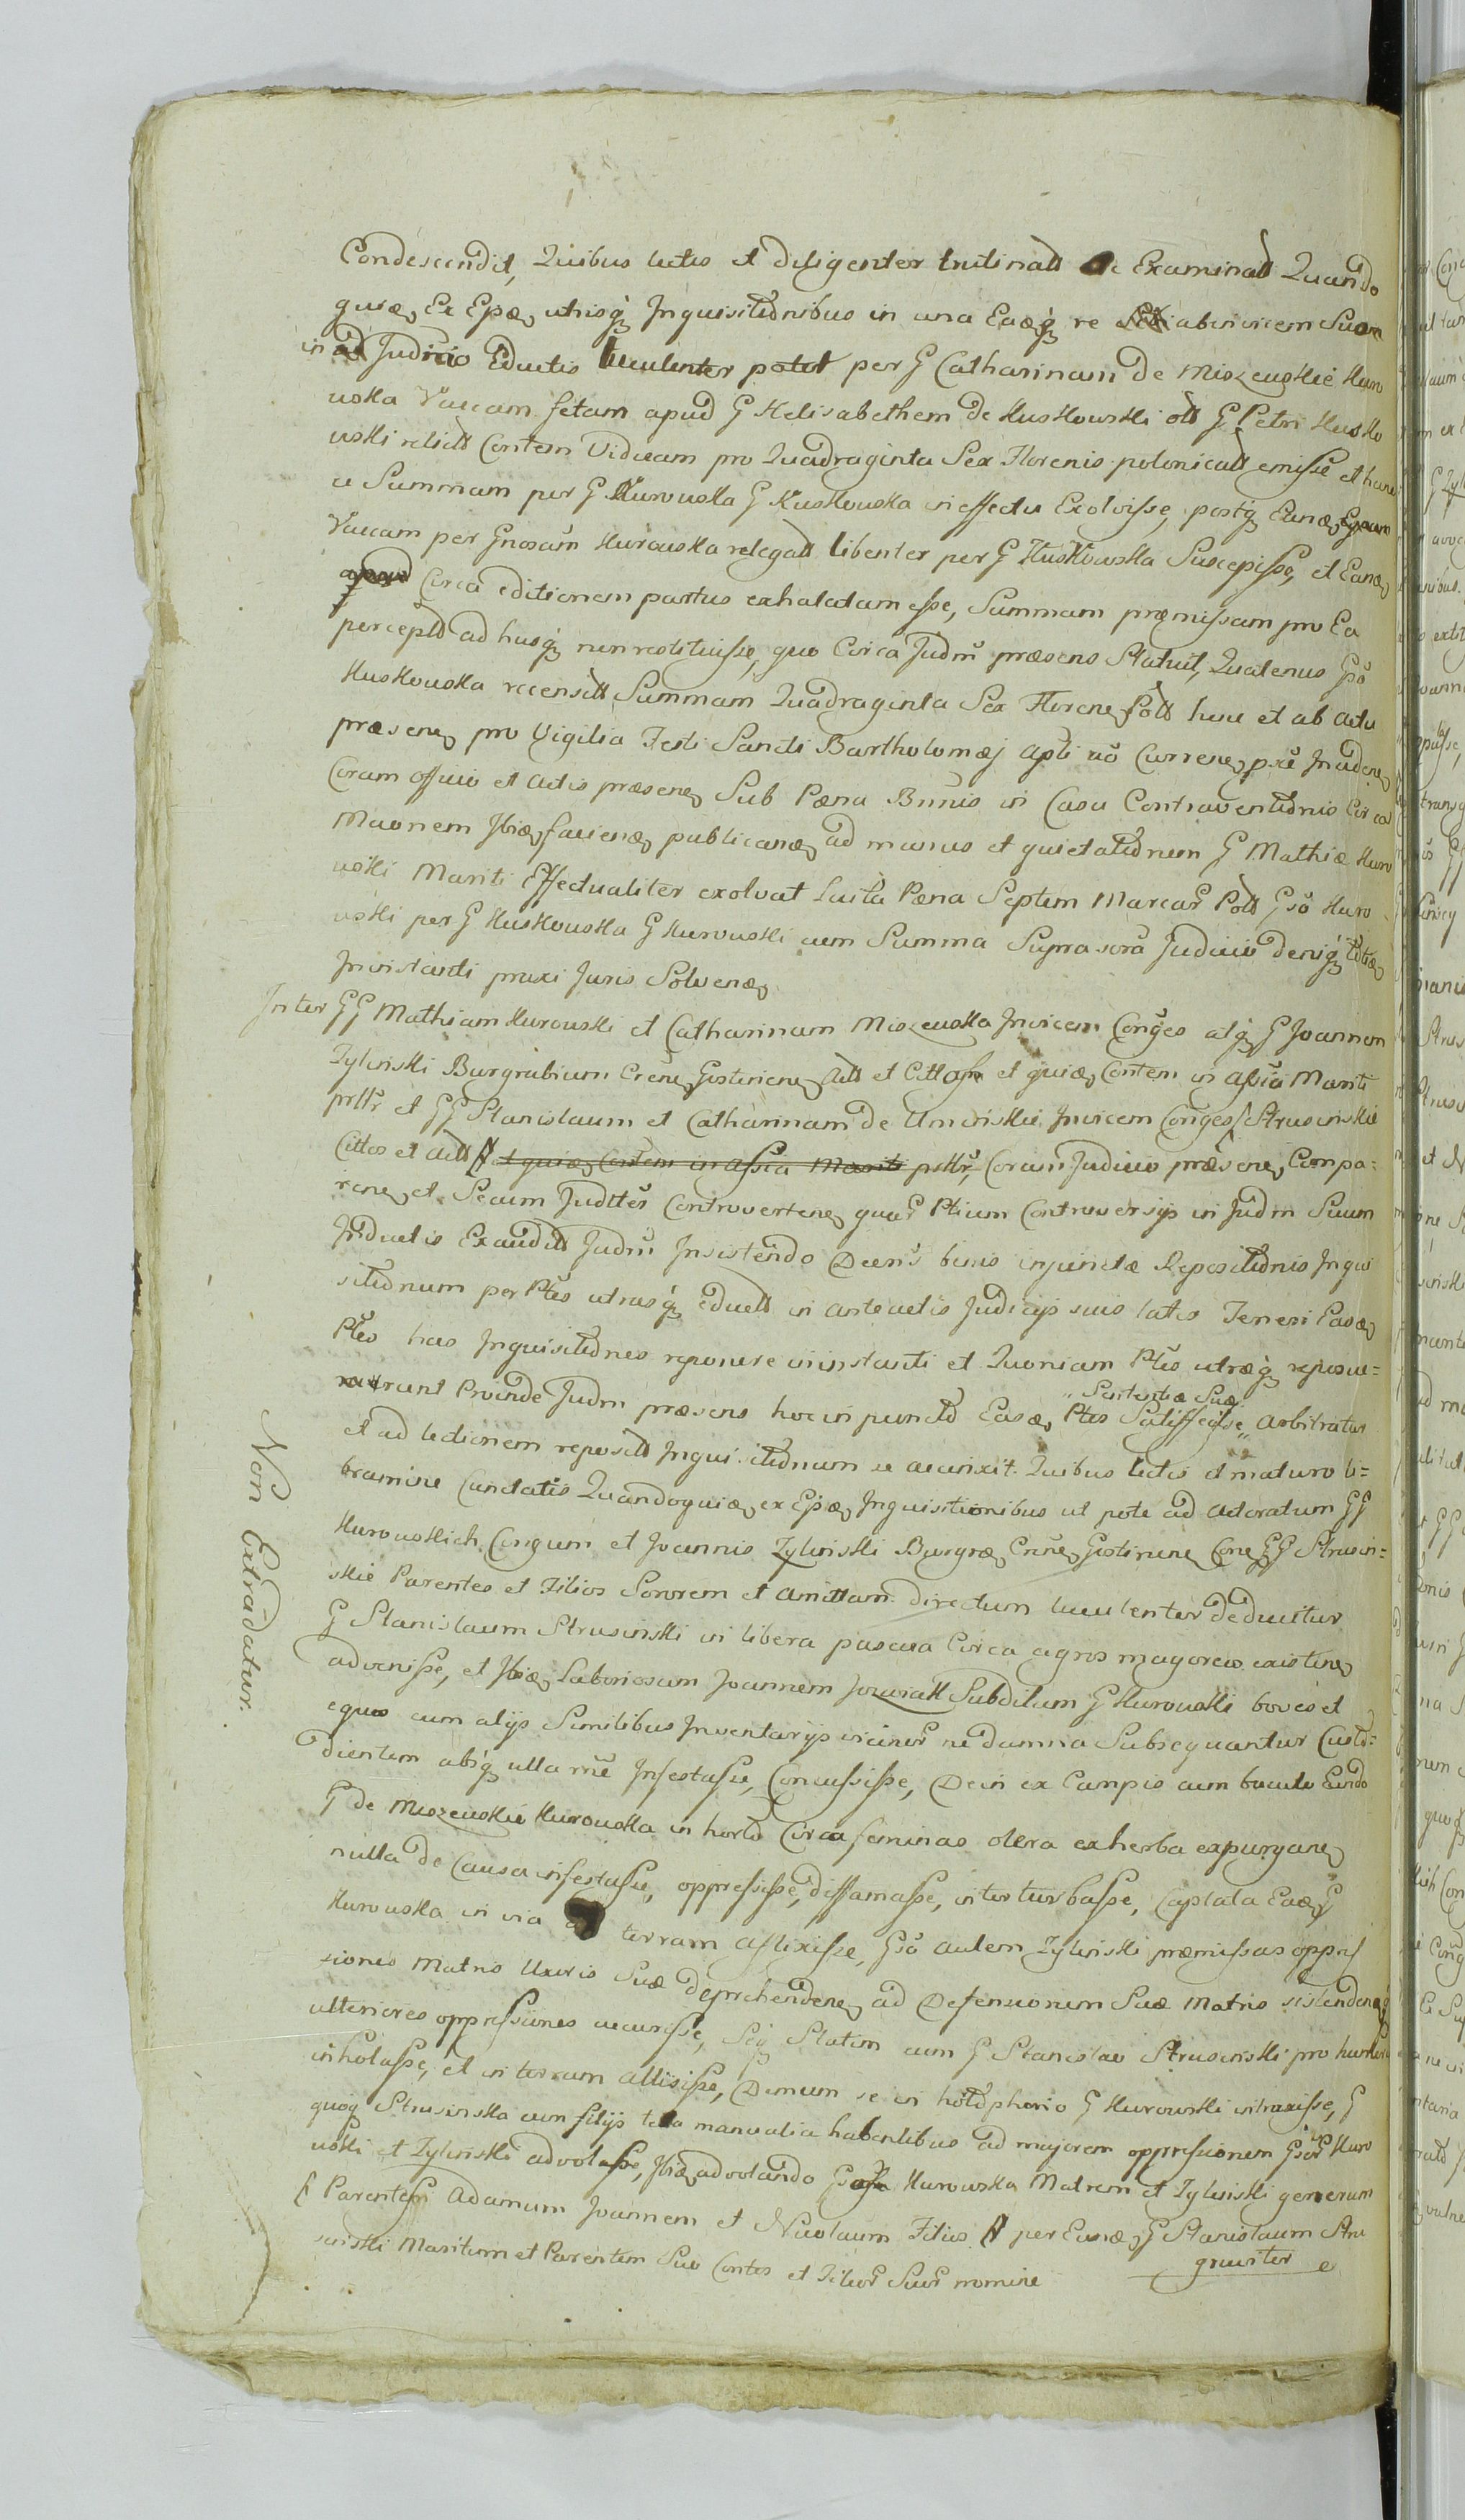 Condescendit, Quibus lectis et diligenter trutinatt ac Examinatt Quando
quidẽ Ex Epdẽ utrisq Inquisitionibus in una Eadẽq re ab invicem Suam
in Judicio Eductis luculenter patet per G Catharinam de Miszewskie Kuro
wska Vaccam fetam apud G Helisabethem de Kuskowski ott G Petri Kusko
wski relictt Contem Viduam pro Quadraginta Sex Florenis polonicatt emisse et hanc
ce Summam per G Kurowska G Kuskowska in effectu Exolvisse, postq Eandẽ
Vaccam per Gnosam Kurowska relegatt libenter per G Kuskowska Suscepisse, et Eandẽ
Circa editionem partus exhalatam esse, Summam præmissam pro Ea
percepto ad husq non restituisse, quo Circa Judm præsens Statuit, Quatenus Gsa
Kuskowska recensitt Summam Quadraginta Sex Florenẽ Pott hinc et ab actu
præsenẽ pro Vigilia Festi Sancti Bartholomæj Apti nõ Currenẽ pxe Inciden
Coram officio et actis præsenẽ Sub Pæna Bnnis in Casu Contraventionis Circa
Maonem Ibidẽ faciendẽ publicandẽ ad manus et quietationem G Mathiæ Kuro
wski Mariti Effectualiter exolvat Luita Pæna Septem Marcar Pott Gsa Kuro
wski per G Kuskowska G Kurowski cum Summa Suprasora Judicio deniq
Ininstanti praxi Juris Solvendẽ
Inter GG Mathiam Kurowski et Catharinam Miszewska Invicem Conges atq G Joannem
Zylinski Burgrabium Crene Gostinenẽ Actt et Cittos et quidẽ Contem in assia Mariti
psttr et GG Stanislaum et Catharinam de Uminskie Invicem Conges Strusinskie
Cittos et Actt et quidẽ Contem in assia Mariti psttr, Coram Judicio præsenẽ Compa=
renẽ et Secum Judttes Controvertenẽ quar Ptium Controversijs in Judm Suum
Inductis Exauditt Judm Insistendo Decris binis injunctæ Repositionis Inqui
sitionum per Ptes utrasq eductt in anteactis Judicijs suis latis Teneri Easdẽ
Ptes has Inquisitiones reponere ininstanti et Quoniam Ptes utræq reposue=
runt Proinde Judm præsens hocin puncto Easdẽ Ptes „Sententiæ Suæ Satisfecisse„ Arbitratur
et ad lectionem repositt Inquisitionum se accinxit. Quibus lectis et maturo li=
bramine Cunctatis Quandoquidẽ ex Epdẽ Inquisitionibus ut pote ad Actoratum GG
Kurowskich Congum et Joannis Zylinski Burgræ Crene Gostinenẽ Cone GG Strusin=
skie Parentes et Filios Sororem et Amittam directum luculenter deducitur
G Stanislaum Strusinski in libera pascua Circa agros majores existenẽ
advenisse, et Ibidẽ Laboriosum Joannem Subditum G Kurowski boves et
equos cum alijs Similibus Inventarijs vicinor ne damna Subsequantur Custo=
dientem absq ulla rne Infestasse, Concussisse, Dein ex Campis cum baculo Eundo
G de Miszewskie Kurowska in horto Circa feminas olera exherba expurganẽ
nulla de Causa infestasse, oppressisse, diffamasse, inturbasse, Captata Eadẽ G
Kurowska in via terram aflixisse, Gsõ autem Zylinski præmissas oppres
siones Matris Uxoris Suæ deprehendenẽ ad Defensionem Suæ Matris sistendasq
ulteriores oppressiones accurisse, Seq Statim cum G Stanislao Strusinski pro
involasse, et in terram allisisse, Demum se in G Kurowski intraxisse, G
quoq Strusinska cum filijs tela manualia habentibus ad majorem oppressionem Gsor Kuro
wski et Zylinski advolasse, Ibidẽ advolando Kurowska Matrem et Zylinski generum
Parentem Adamum Joannem et Nicolaum Filios per Eundẽ G Stanislaum Stru
sinski Maritum et Parentem Suo Contis et Filior Suor nomine
graviter
Non Extradatur.